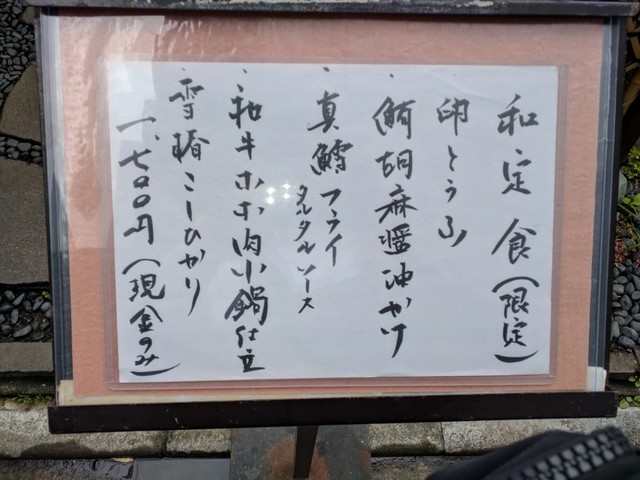 和定食(限定)
卵とうふ
・鮪胡麻醤油かけ
・真鱈フライ
タルタルソース
・和牛ホホ肉小鍋仕立
・雪椿こしひかり
一、七〇〇円(現金のみ)